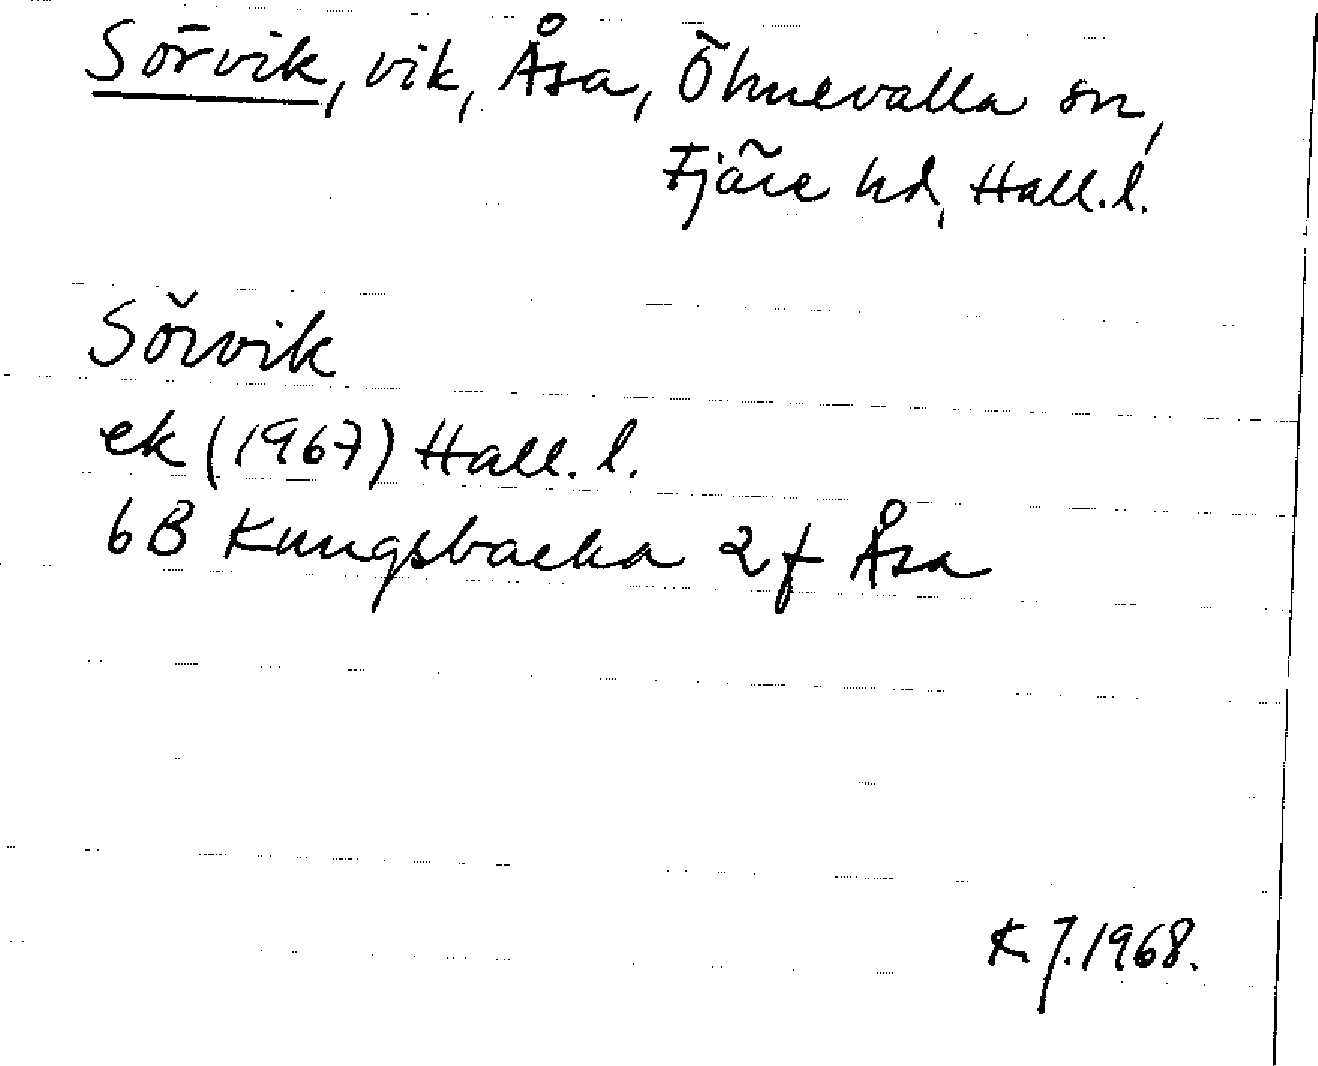 Sörvik, vik, Åsa, Ölmevalla sn,
Fjäre hd, Hall. l.
Sörvik
ek (1967) Hall. l.
6B Kungsbacka 2f Åsa
K J. 1968.